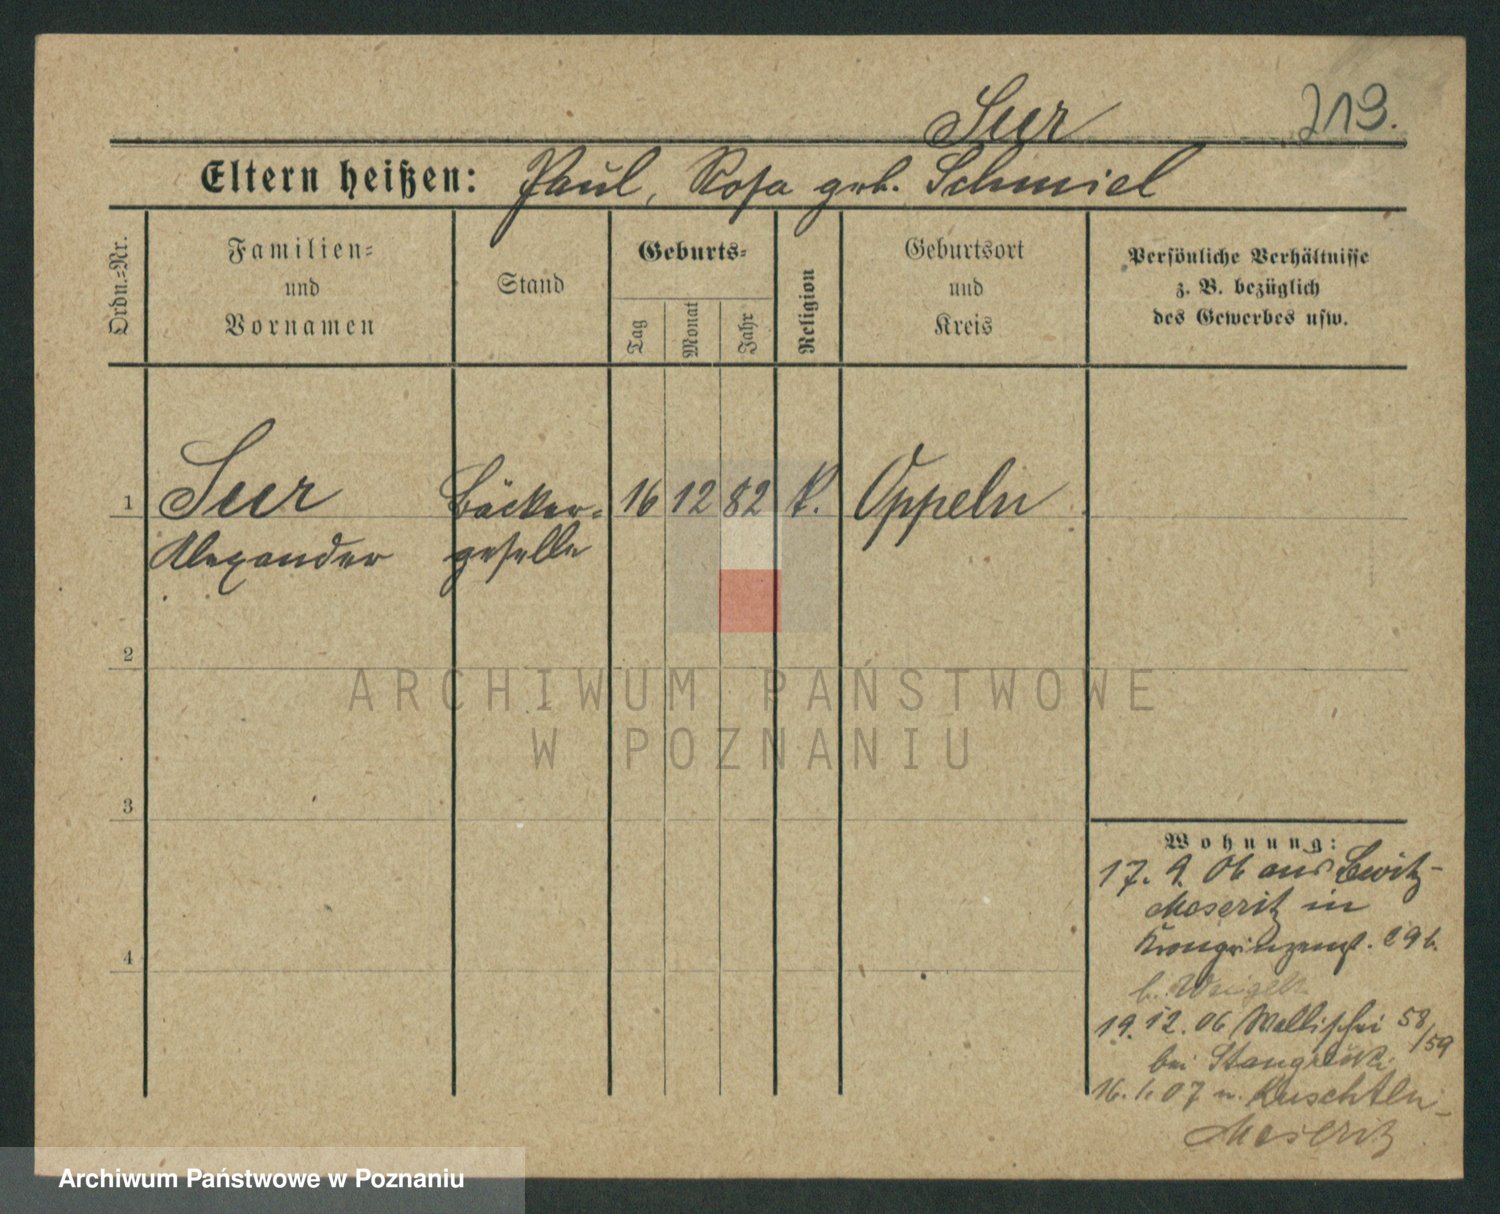 Suer
213.
Eltern heißen: Paul, Rosa geb. Schmiel
Ordn.=Nr.
Familien=
und
Vornamen
Stand
Geburts=
Tag
Monat
Jahr
Religion
Geburtsort
und
Kreis
Persönliche Verhältnisse
z. B. bezüglich
des Gewerbes usw.
1 Suer Bäcker= 16 12 82 k. Oppeln
Alexander geselle
2
ARCHIWUM PAŃSTWOWE
W POZNANIU
3
Wohnung:
17. 9. 06 aus Lewitz-
Meseritz in
Kronprinzenst. 89 b.
b.
19. 12. 06 Wallischei 58/59
bei
4
16. 1. 07 n. Kuschten-
Meseritz
Archiwum Państwowe w Poznaniu